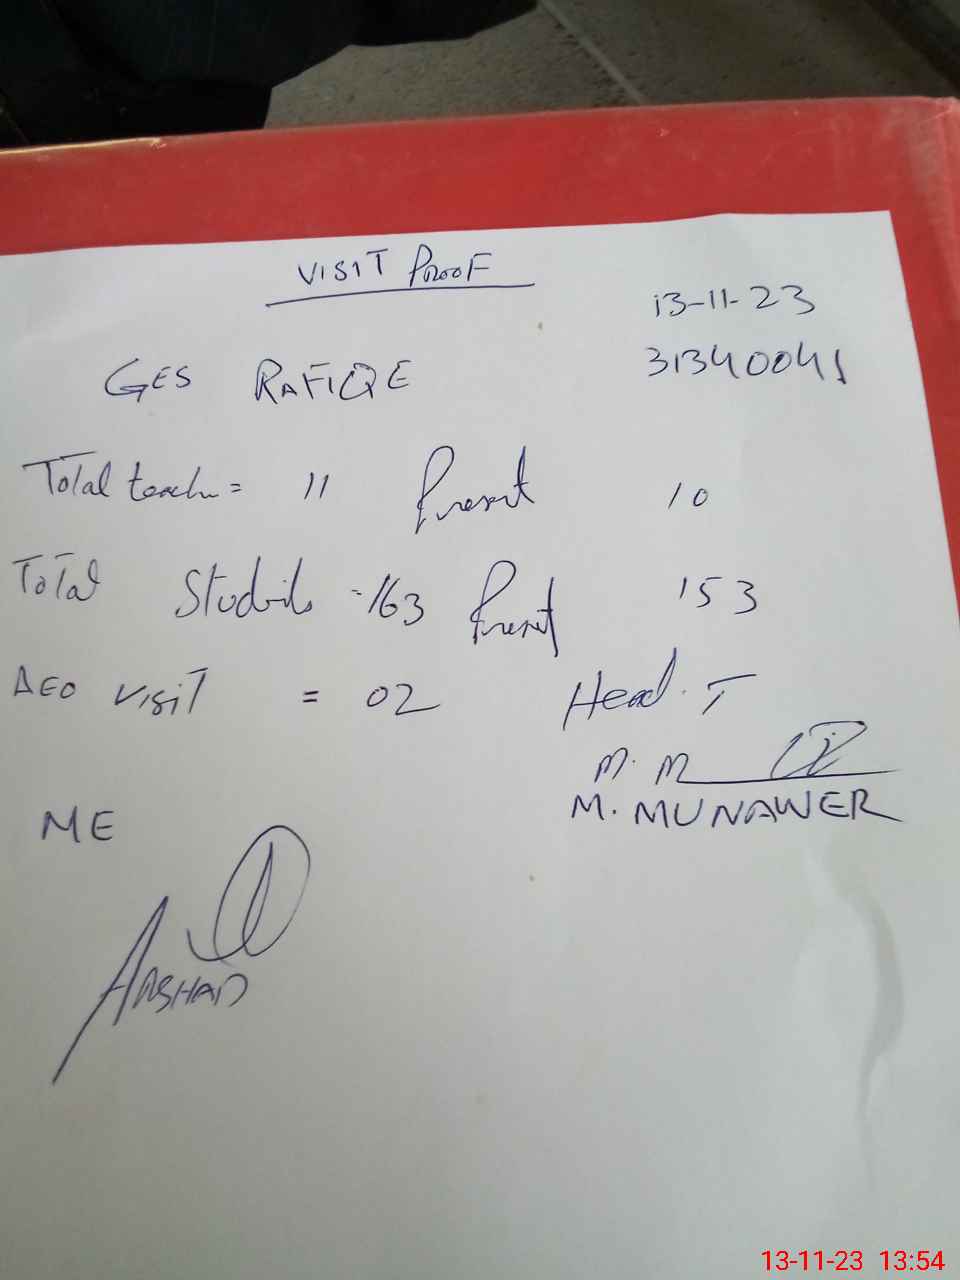 VISIT PROOF
13-11-23
GES RAFIQE 31340041
Total teach = 11 Present 10
Total Students = 163 Present 153
AEO visit = 02 Head. T
M. M
M. MUNAWER
ME
ARSHAD
13-11-23 13:54